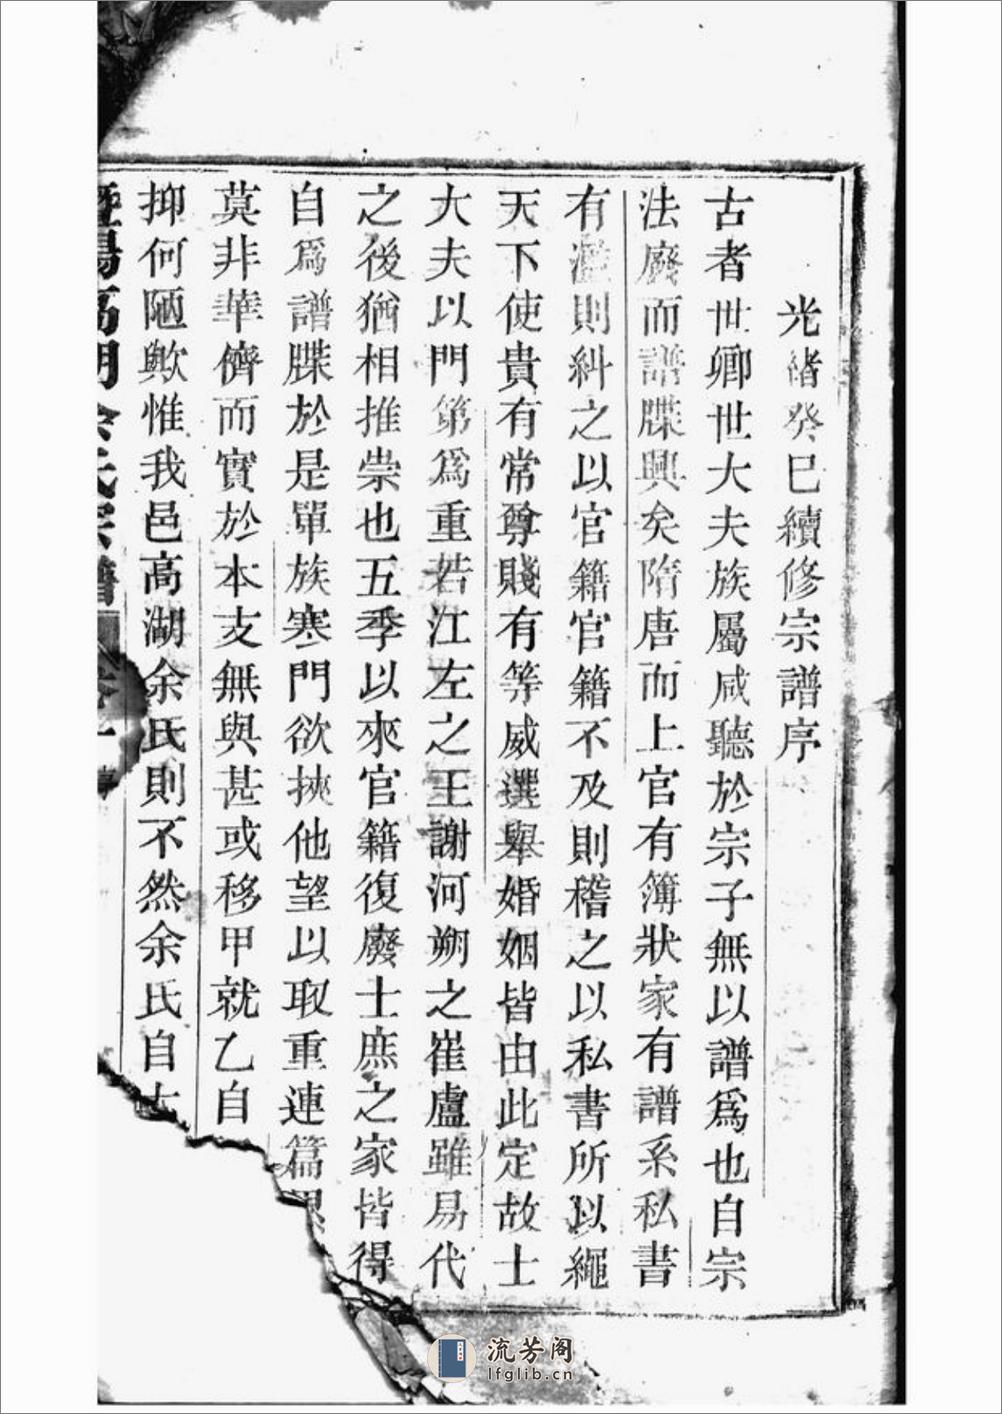 光緒癸巳續修宗譜序
古者世卿世大夫族屬咸聽於宗子無以譜爲也自宗
法廢而譜牒興矣隋唐而上官有簿狀家有譜系私書
有濫則糾之以官籍官籍不及則稽之以私書所以繩
天下使貴有常尊賤有等威選舉婚姻皆由此定故士
大夫以門第爲重若江左之王謝河朔之崔盧雖易代
之後猶相推崇也五季以來官籍復廢士庶之家皆得
自爲譜牒於是單族寒門欲挾他望以取重連篇累
莫非華儕而實於本支無與甚或移甲就乙自
抑何陋歟惟我邑高湖余氏則不然余氏自
暨陽高湖余氏宗譜 卷一 序
流芳阁
lfglib.cn